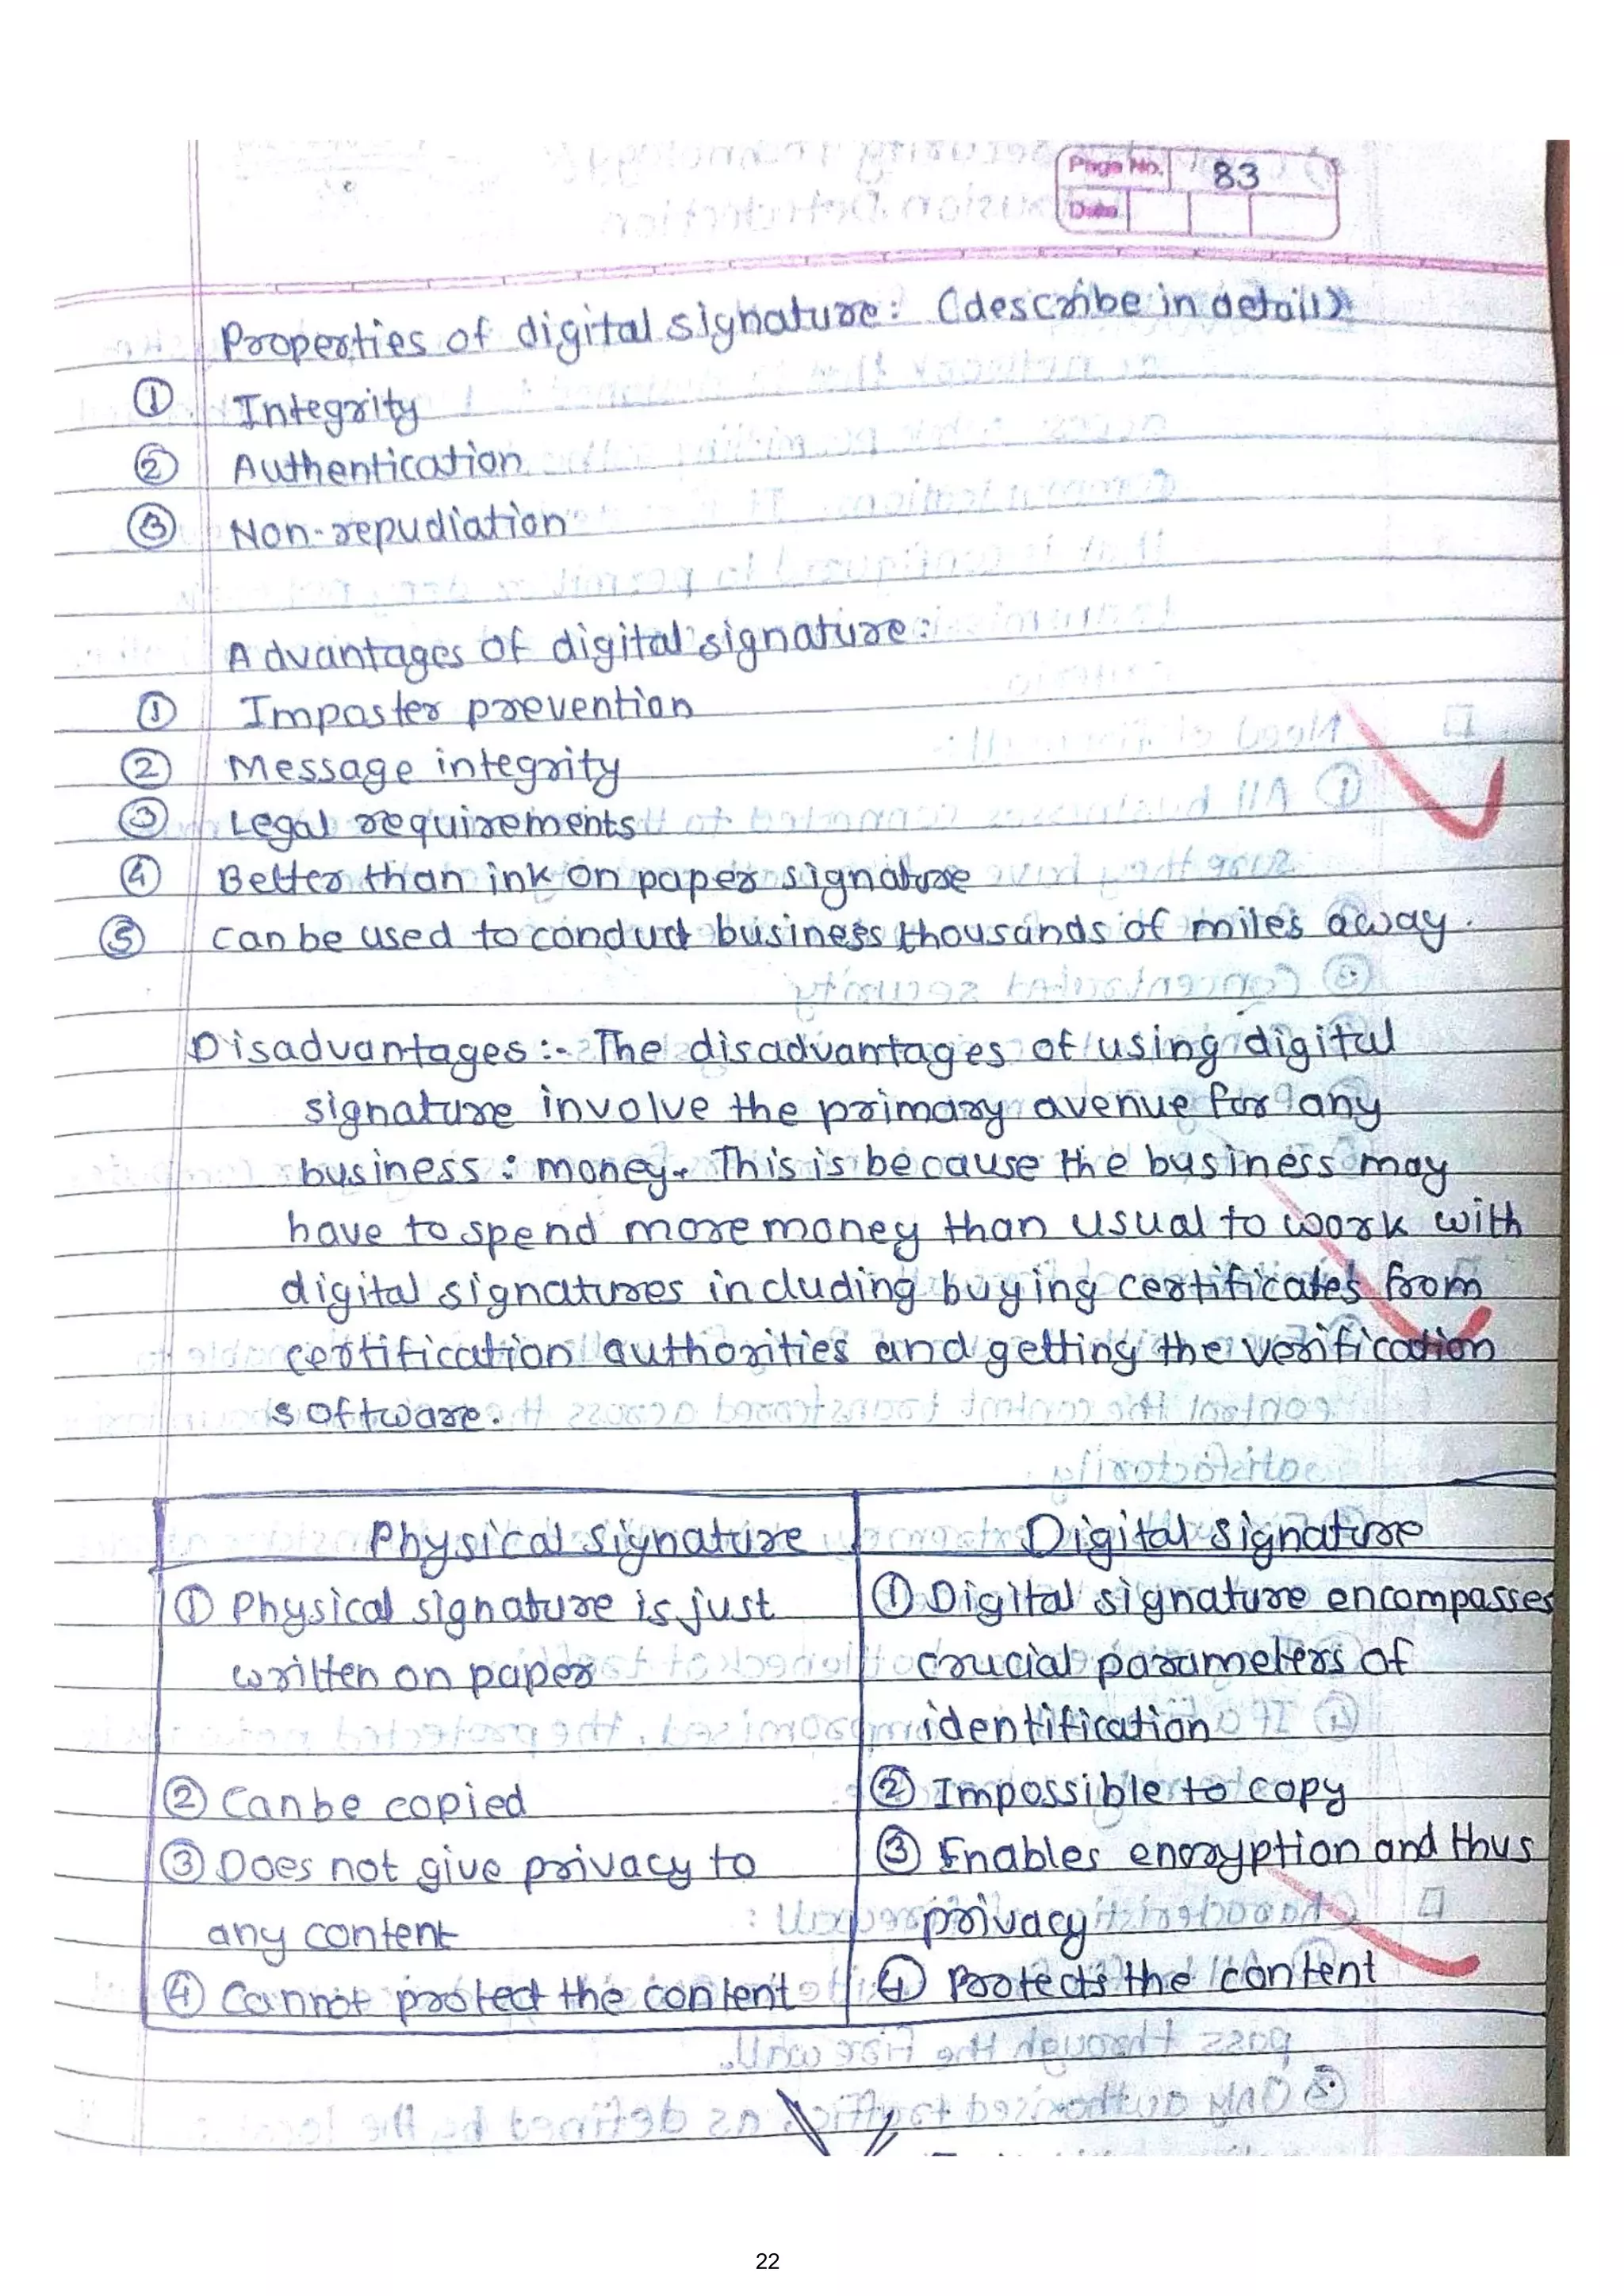 Page No. 83
Date
Properties of digital signature: (describe in detail)
① Integrity
② Authentication
③ Non-repudiation
Advantages of digital signature:
① Imposter prevention
② Message integrity
③ Legal requirements
④ Better than ink on paper signature
⑤ can be used to conduct business thousands of miles away.
Disadvantages :- The disadvantages of using digital
signature involve the primary avenue for any
business : money. This is because the business may
have to spend more money than usual to work with
digital signatures including buying certificates from
certification authorities and getting the verification
software.
Physical signature Digital signature
① Physical signature is just ① Digital signature encompasses
written on paper crucial parameters of
identification
② Can be copied ② Impossible to copy
③ Does not give privacy to ③ Enables encryption and thus
any content privacy
④ Cannot protect the content ④ Protects the content
22